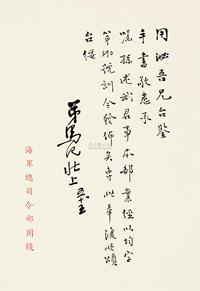 用淞吾兄台鑒
手書敬悉承
囑孫述武君事本部業經以均字
第 號説訓令發佈矣專此奉復順頌
台綏
弟馬
上
海軍總司令部用箋